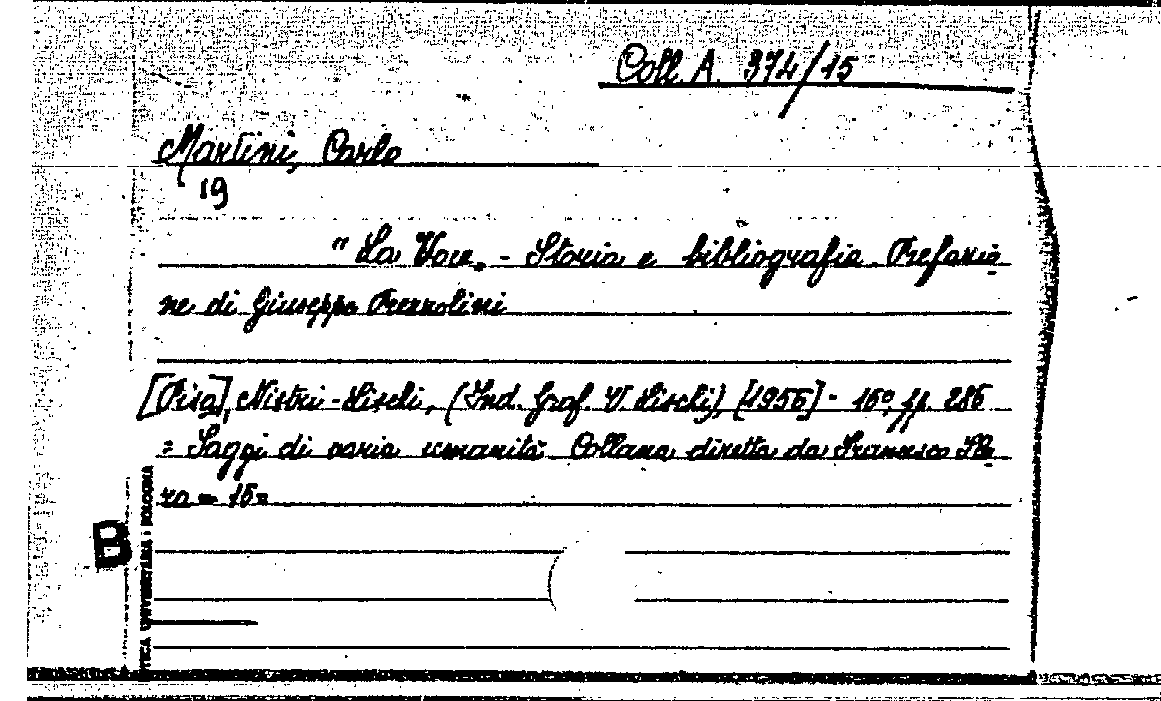 Coll. A. 374/15
Martini, Carlo
19
"La Voce„ - Storia e bibliografia. Prefazio-
ne di Giuseppe Prezzolini
[Pisa], Nistri-Lischi, (Ind. Graf. V. Lischi), [1956] - 16º, pp. 286
= Saggi di varia umanità. Collana diretta da Francesco Flo-
ra = 15=
B
TECA UNIVERSITARIA i BOLOGNA